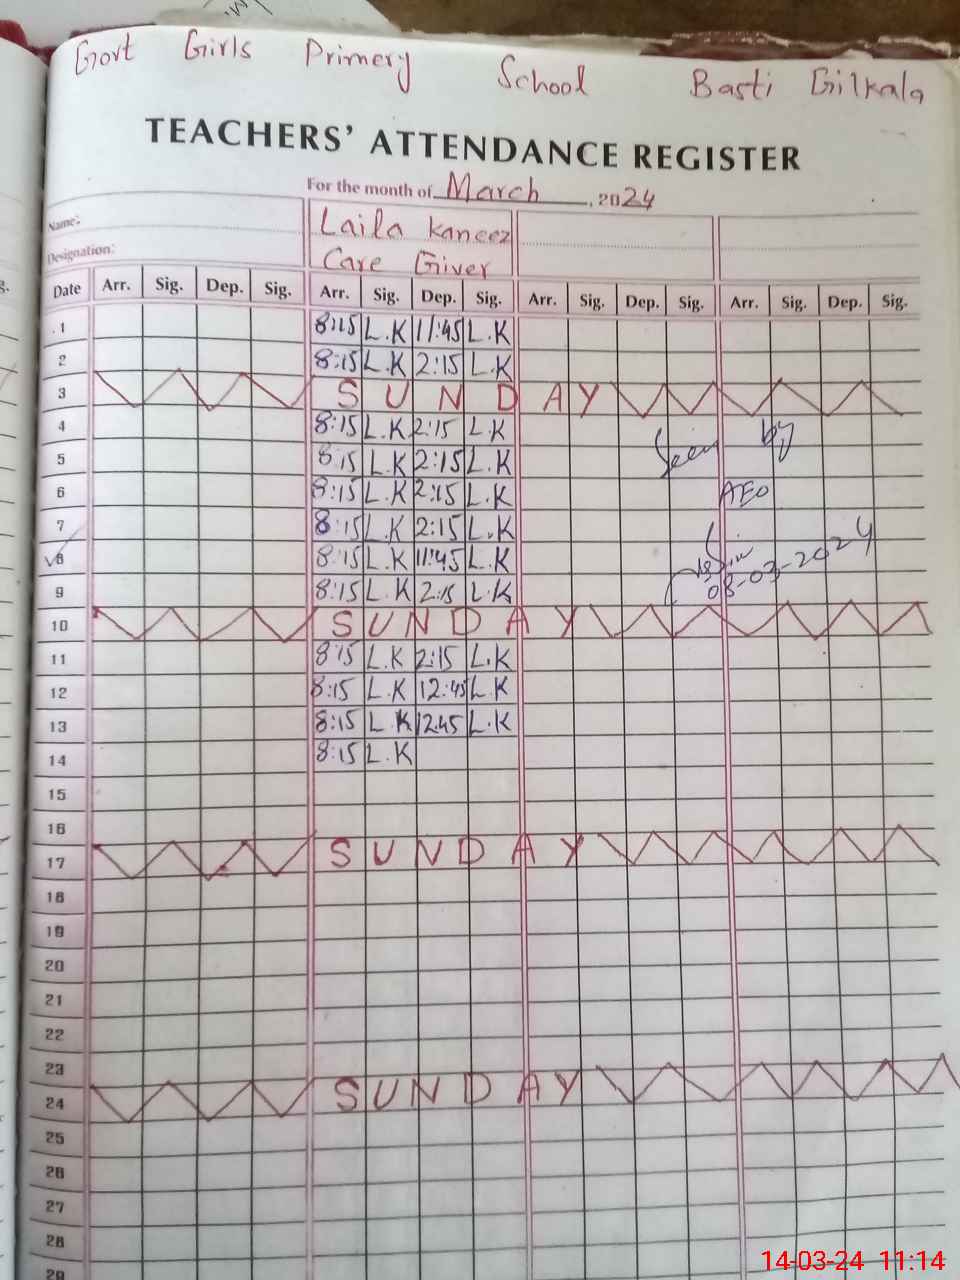 Govt Girls Primery School Basti Gilkala
TEACHERS' ATTENDANCE REGISTER
For the month of March, 2024
Name: Laila Kaneez
Designation: Care Giver
Date Arr. Sig. Dep. Sig. Arr. Sig. Dep. Sig. Arr. Sig. Dep. Sig. Arr. Sig. Dep. Sig.
1 8:15 L.K 11:45 L.K
2 8:15 L.K 2:15 L.K
3 SUNDAY
4 8:15 L.K 2:15 L.K
Seen by
5 8:15 L.K 2:15 L.K
6 8:15 L.K 2:15 L.K
AEO
7 8:15 L.K 2:15 L.K
8 8:15 L.K 11:45 L.K
08-03-2024
9 8:15 L.K 2:15 L.K
10 SUNDAY
11 8:15 L.K 2:15 L.K
12 8:15 L.K 12:45 L.K
13 8:15 L.K 12:45 L.K
14 8:15 L.K
15
16
17 SUNDAY
18
19
20
21
22
23
24 SUNDAY
25
26
27
28
29
14-03-24 11:14